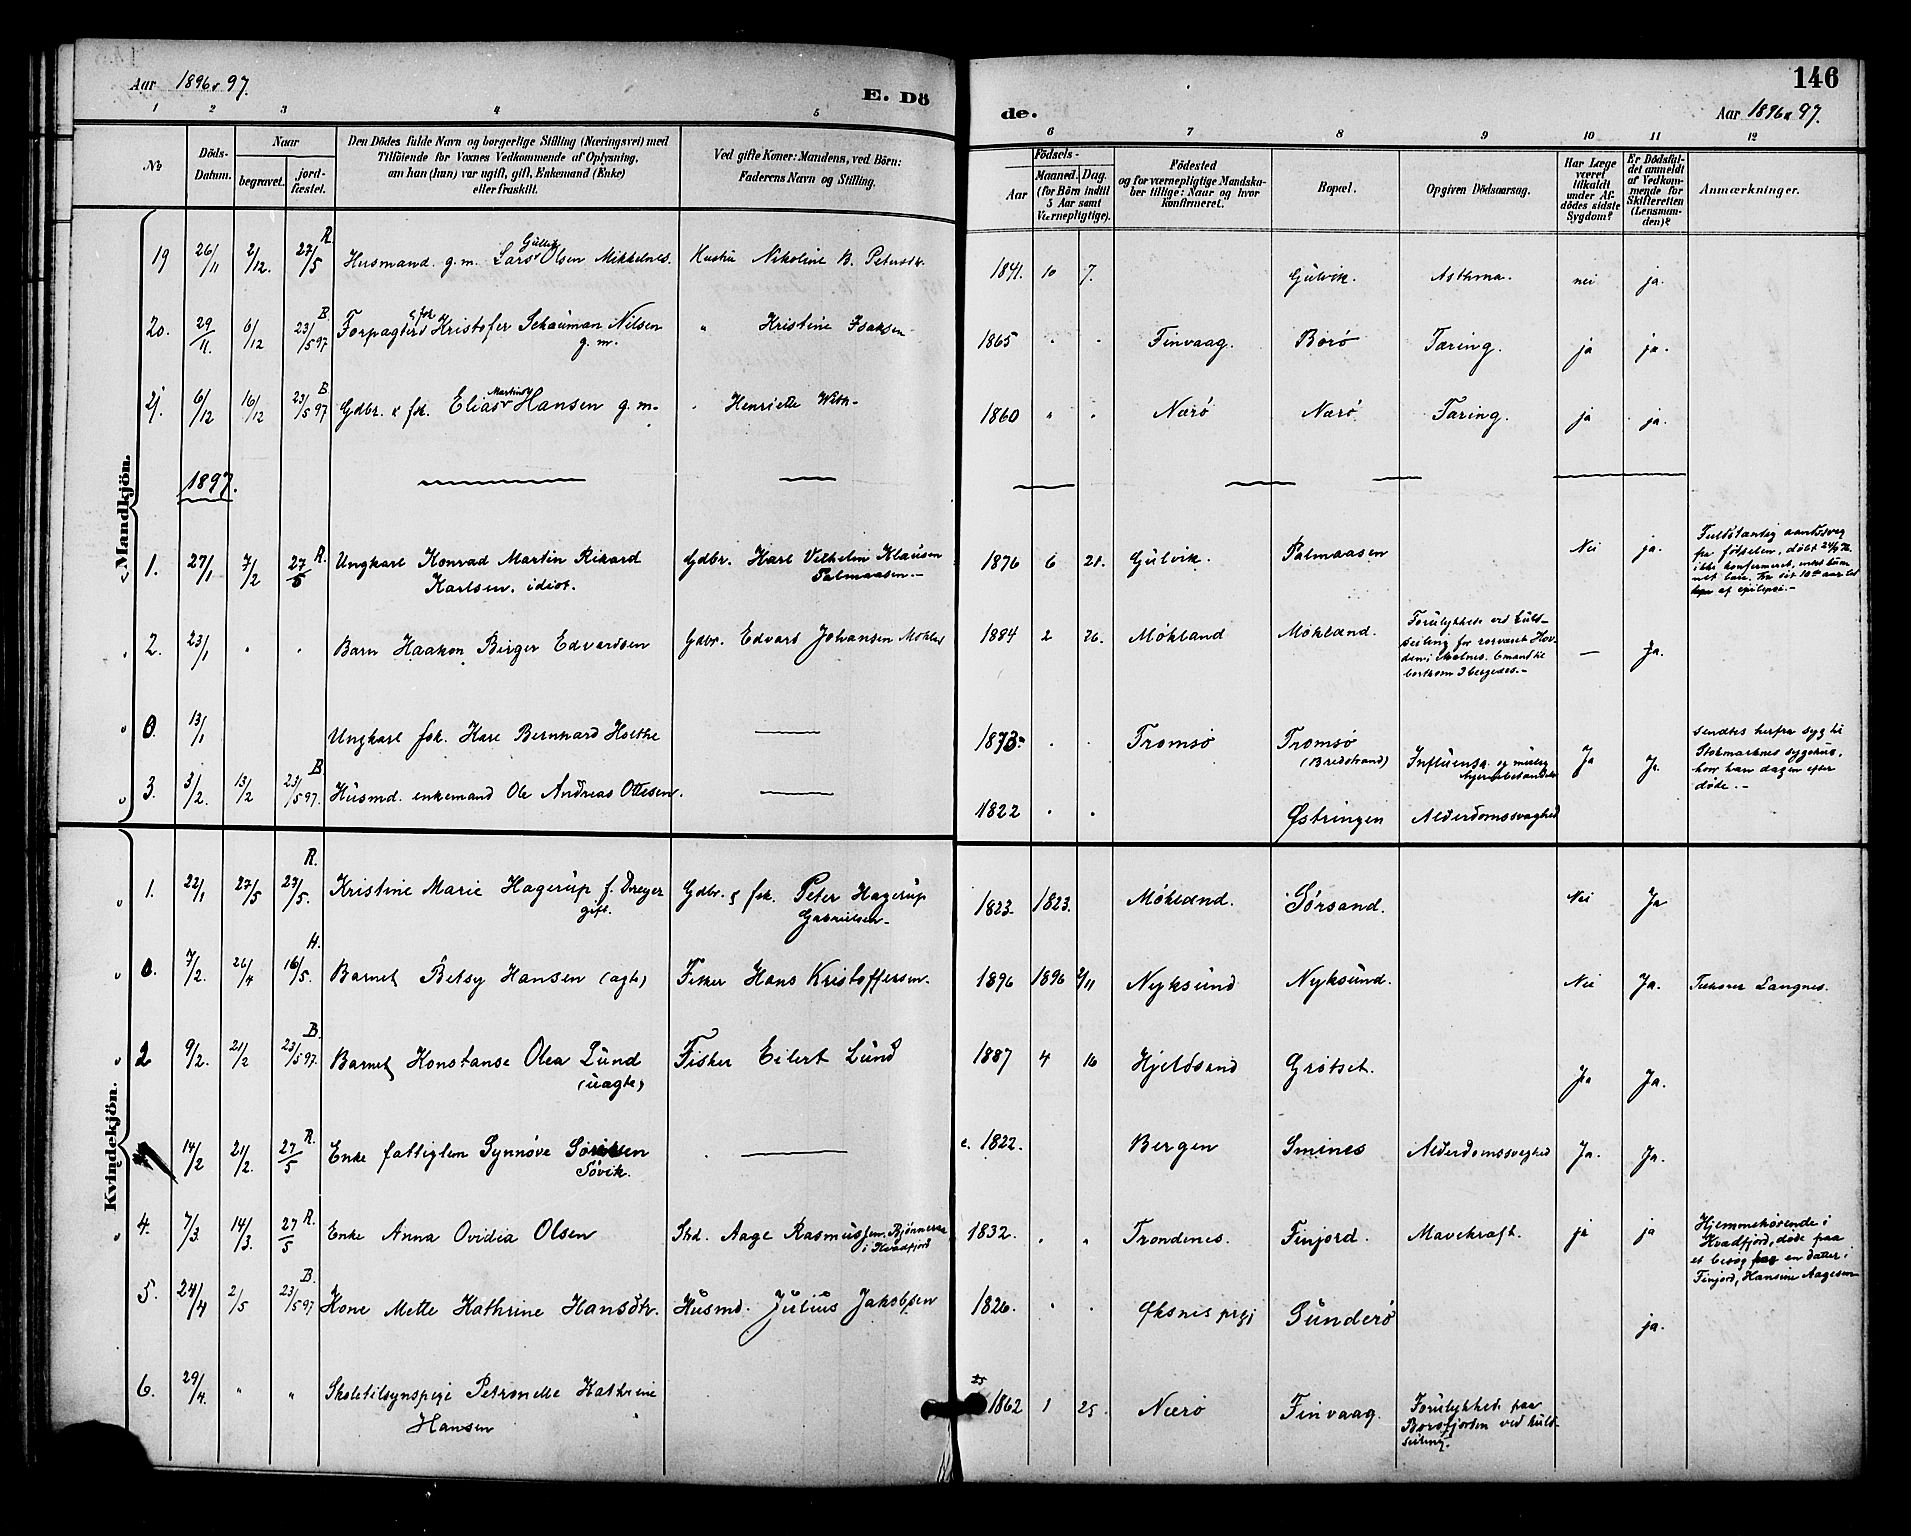 Aar 1896 & 97.
E. Dö
1 2 3 4 5
No
Döds-Datum.
Naar
begravet.
jord-fæstet.
Den Dödes fulde Navn og borgerlige Stilling (Næringsvei) med
Tilföiende for Voxnes Vedkommende af Oplysning,
om han (hun) var ugift, gift, Enkemand (Enke)
eller fraskilt.
Ved gifte Koner: Mandens, ved Börn:
Faderens Navn og Stilling.
Mandkjön.
19 26/11 2/12. 27/5 R. Husmand g.m. Lars Olsen Mikkelnes. Hustru Nikoline B. Petersdtr.
20. 29/11. 6/12 23/5 97 B Forpagter & fsk Kristofer Schauman Nilsen g.m. " Kristine Isaksen
21. 6/12 16/12 23/5 97 B Gdbr. & fsk. Elias Martinus Hansen g.m. " Henriette With
1897.
1. 27/1 7/2 27/5 R. Ungkarl Konrad Martin Rikard Gdbr. Karl Vilhelm Klausen
Karlsen. idiot. Palmaasen.
2. 23/1 " " Barn Haakon Birger Edvardsen Gdbr. Edvart Johansen Møkland
0. 13/1 Ungkarl fsk. Karl Bernhard Holthe
3. 3/2. 13/2 23/5 97. B Husmd. enkemand Ole Andreas Ottesen.
Kvindekjön.
1. 22/1 27/5 27/5. R. Kristine Marie Hagerup f. Dreyer Gdbr. & fsk. Peter Hagerup
gift. Gabrielsen
0. 7/2. 26/4 16/5. H. Barnet Betsy Hansen (ægte) Fisker Hans Kristoffersen.
2 9/2. 21/2 23/5 97. B. Barnet Konstanse Olea Lund Fisker Eilert Lund
(uægte)
14/2 21/2. 27/5 R. Enke fattiglem Synnøve
Søvik.
4. 7/3. 14/3. 27/5 R. Enke Anna Ovidia Olsen Strd. Aage Rasmussen. Bjønneraa
i Kvædfjord
5. 24/4 2/5 23/5 97 B. Kone Mette Kathrine Hansdtr. Husmd. Julius Jakobsen
6. 29/4. " " Skoletilsynspige Petronelle Kathrine
Hansen
146
de.
Aar 1896 & 97.
6 7 8 9 10 11 12
Födsels-
Aar
Maaned. Dag.
(for Börn indtil
5 Aar samt
Værnepligtige).
Födested
og for værnepligtige Mandska-
ber tillige: Naar og hvor
konfirmeret.
Bopæl.
Opgiven Dödsaarsag.
Har Læge
været
tilkaldt
under Af-
dödes sidste
Sygdom?
Er Dödsfal-
det anmeldt
af Vedkom-
mende for
Skifteretten
(Lensman-
den)?
Anmærkninger.
1841. 10 7. Gulvik. Asthma. nei ja.
1865 " " Finvaag. Borø Tæring. ja ja.
1860 " " Nærø Nærø. Tæring. ja ja.
1876 6 21. Gulvik. Palmaasen Nei ja.
Fuldstændig aandssvag
fra fødselen, døbt
ikke konfirmeret,
Fra sit 10de aar led
af epilepsi.
1884 2 26. Møkland Møkland. — Ja.
Forulykkede ved kuld-
seiling for rorværet Hov-
den i Malnes. 6 mand til
bortkom 3 bergedes.
1873 " " Tromsø Tromsø
(Bredstrand) Influensa og Ja Ja.
Sendtes herfra syg til
Stokmarknes sygehus,
hvor han dagen efter
døde.
1822 " " Østringen Alderdomssvaghed
1823. 1823. Møkland. Sørsand. Nei Ja
1896 1896 9/11 Nyksund Nyksund. Nei Ja. Langnes.
1887 4 16 Hjeldsand Grøtset. Ja Ja.
c. 1822. Bergen Smines Alderdomssvaghed Ja. Ja.
1832. " " Trondenes. Finjord. Mavekræft. ja ja
Hjemmehørende i
Kvædfjord, døde paa
et besøg hos en datter i
Finjord, Hansine Aagesen
1826. " " Øksnes prgj Sunderø ja.
1862 1 25. Nærø Finvaag.
Forulykked. paa
Borøfjorden ved kuld-
seiling.